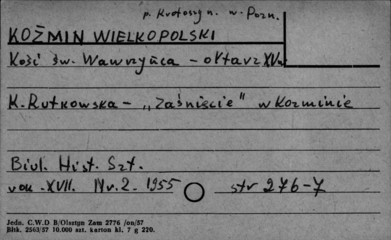 p. Krotoszyn. w. Pozn.
KOŹMIN WIELKOPOLSKI
Kość św. Wawrzyńca - ołtarz XVw
K. Rutkowska - „Zaśnięcie" w Kozminie
Biul. Hist. Szt.
rok XVII. Nr. 2. 1955 str 276-7
Jedn. C.W.D B/Olsztyn Zam 2776 /on/57
Bltk. 2563/57 10.000 szt. karton kl. 7 g 220.